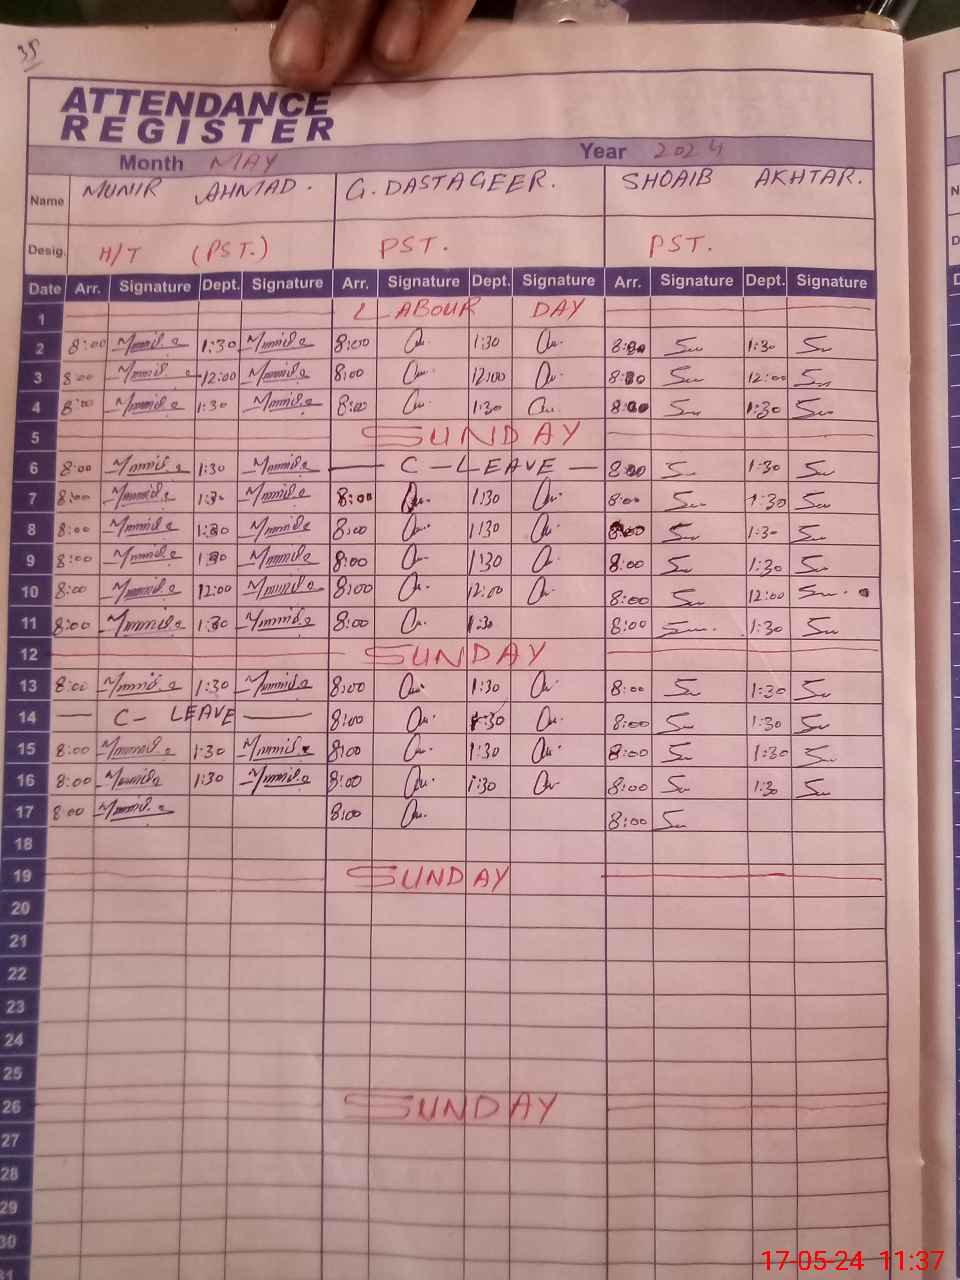 35
ATTENDANCE
REGISTER
Month MAY Year 2024
Name MUNIR AHMAD. G. DASTAGEER. SHOAIB AKHTAR.
Desig. H/T (PST.) PST. PST.
Date Arr. Signature Dept. Signature Arr. Signature Dept. Signature Arr. Signature Dept. Signature
1 LABOUR DAY
2 8:00 1:30 8:00 1:30 8:00 1:30
3 8:00 12:00 8:00 12:00 8:00 12:00
4 8:00 1:30 8:00 1:30 8:00 1:30
5 SUNDAY
6 8:00 1:30 C-LEAVE 8:00 1:30
7 8:00 1:30 8:00 1:30 8:00 1:30
8 8:00 1:30 8:00 1:30 8:00 1:30
9 8:00 1:30 8:00 1:30 8:00 1:30
10 8:00 12:00 8:00 12:00 8:00 12:00
11 8:00 1:30 8:00 1:30 8:00 1:30
12 SUNDAY
13 8:00 1:30 8:00 1:30 8:00 1:30
14 C- LEAVE 8:00 1:30 8:00 1:30
15 8:00 1:30 8:00 1:30 8:00 1:30
16 8:00 1:30 8:00 1:30 8:00 1:30
17 8:00 8:00 8:00
18
19 SUNDAY
20
21
22
23
24
25
26 SUNDAY
27
28
29
30
31
17-05-24 11:37